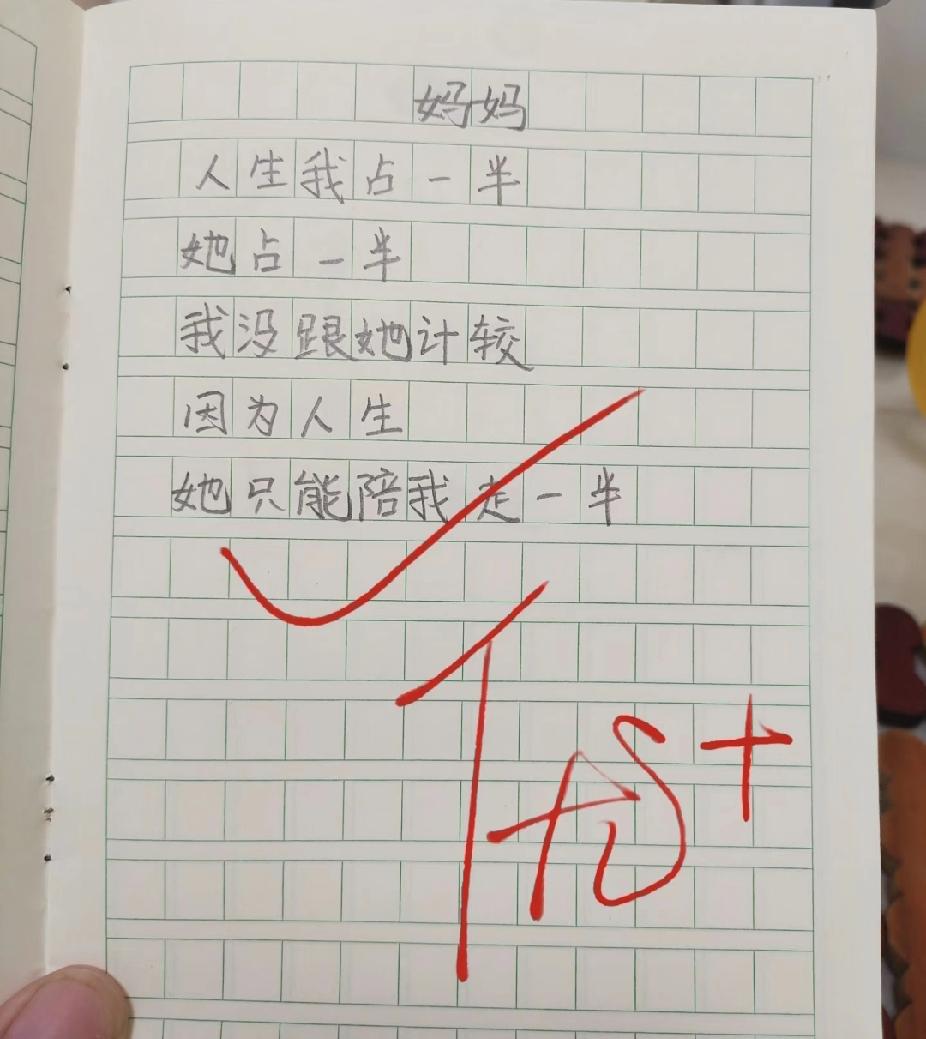 妈妈
人生我占一半
她占一半
我没跟她计较
因为人生
她只能陪我走一半